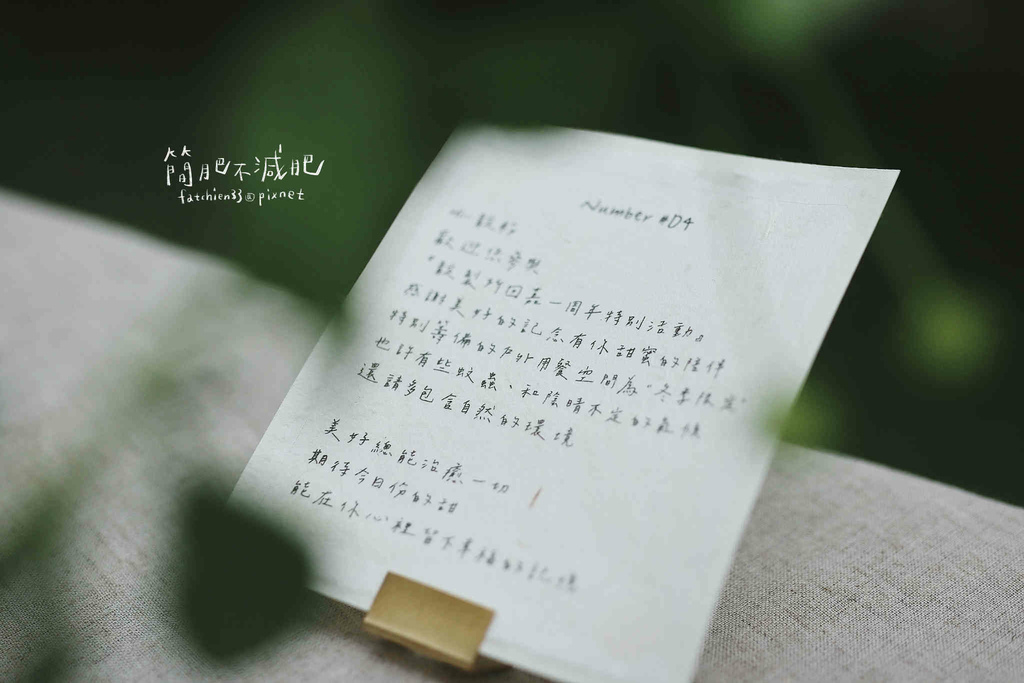 簡肥不減肥
fatchien33@pixnet
Number #D4
歡迎您參與
『穀製所回嘉一周年特別活動』
感謝美好的記念有你甜蜜的陪伴
特別籌備的戶外用餐空間為"冬季限定"
也許有些蚊蟲、和陰晴不定的氣候
還請多包含自然的環境
美好總能治癒一切
期待今日份的甜
能在你心裡留下幸福的記憶